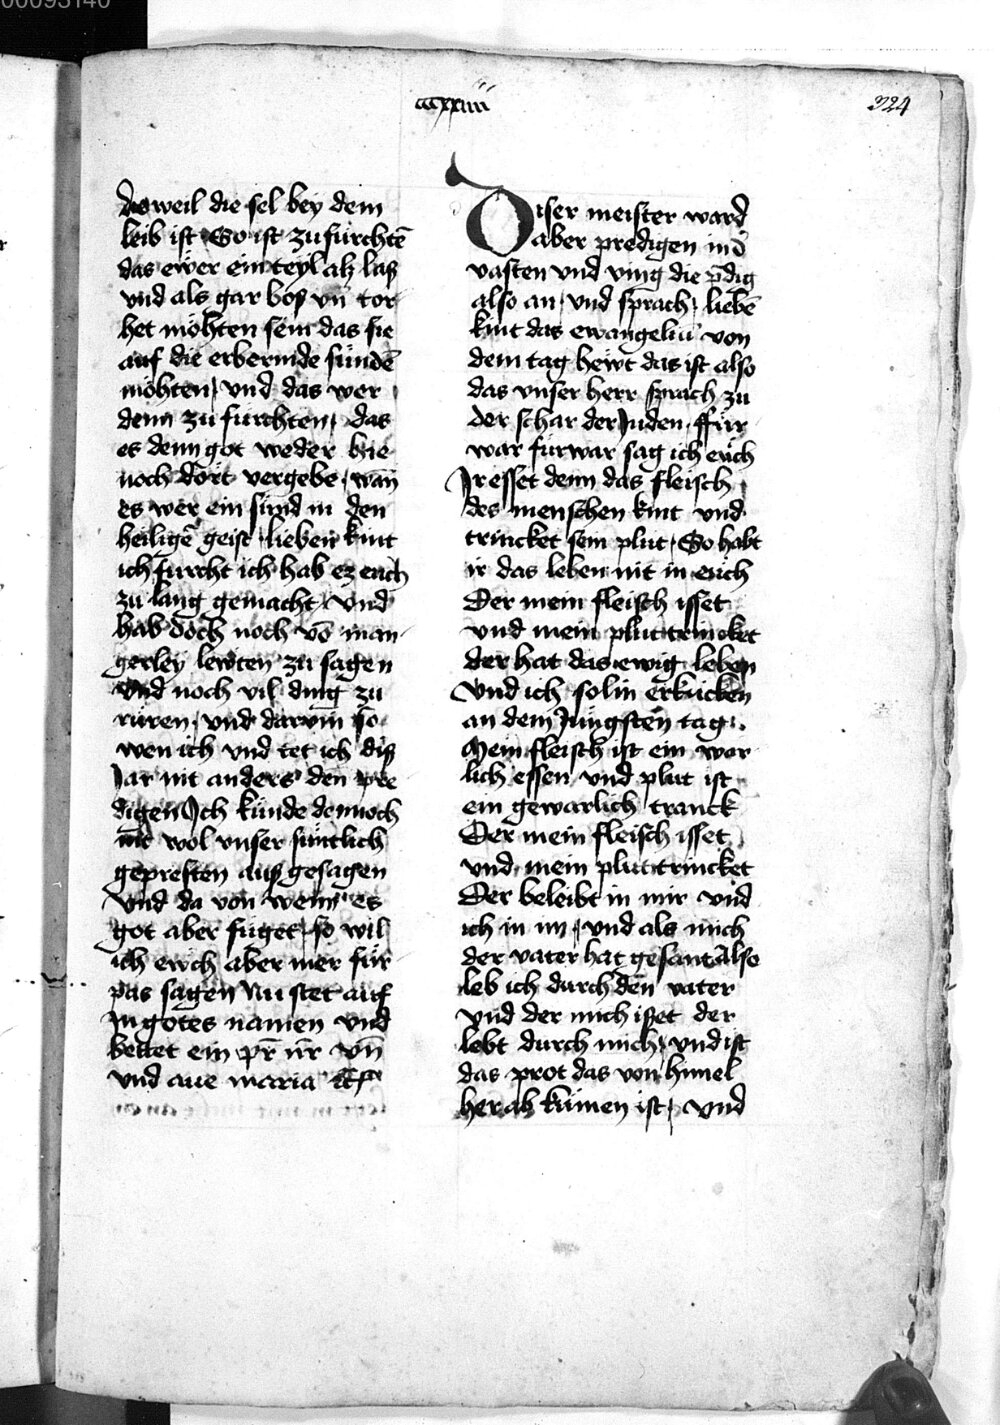 00093140
cccxxiiii
324
dieweil die sel bey dem
leib ist So ist zufürchtē
das ewer ein teyl als laß
vnd als gar bos vn̄ tor-
het möhten sein das sie
auf die erbermde sündē
möhten, vnd das wer
denn zu furchten, das
es denn got weder hie
noch dort vergebe, wān
es wer ein sünd in den
heiligē geist, lieben kint
ich fürcht ich hab ez euch
zu lang gemacht, vnd
hab doch noch vō man-
gerley lewten zu sagen
Vnd noch vil ding zu
rüren, vnd darvm so
wen ich vnd tet ich diß
Jar nit anders den pre
digen Ich künde dennoch
nit wol vnser süntlich
gepresten auß gesagen
Vnd da von wenn es
got aber füget, so wil
ich ewch aber mer für
pas sagen Nu stet auf
In gotes namen vnd
bettet ein pr̄ nr̄ vn̄
vnd aue maria ꝛc
Diser meister ward
aber predigen in d̄
vasten vnd ving die p̄dig
also an, vnd sprach, liebē
kint das ewangeliū von
dem tag hewt das ist also
das vnser herr sprach zu
der schar der Juden, ffür
war fürwar sag ich euch
Ir esset denn das fleisch
des menschen kint vnd
trincket sein plut, So habt
ir das leben nit in euch
Der mein fleisch isset
vnd mein plut trincket
der hat das ewig leben
Vnd ich sol in erkücken
an dem Jüngsten tag.
Mein fleisch ist ein wor
lich essen vnd plut ist
ein gewarlich tranck
Der mein fleisch isset
vnd mein plut trincket
Der beleibt in mir vnd
ich in im, vnd als mich
der vater hat gesant Also
leb ich durch den vater
vnd der mich isset der
lebt durch mich, vnd ist
das prot das von himel
her ab kumen ist, vnd